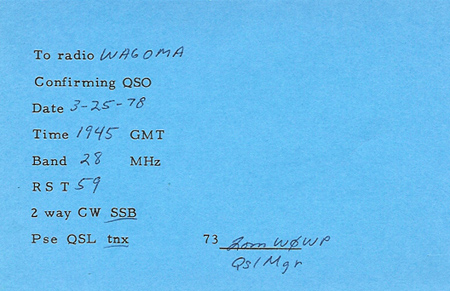 To radio WA6OMA
Confirming QSO
Date 3-25-78
Time 1945 GMT
Band 28 MHz
R S T 59
2 way CW SSB
Pse QSL tnx
73 Tom WØWP
Qsl Mgr